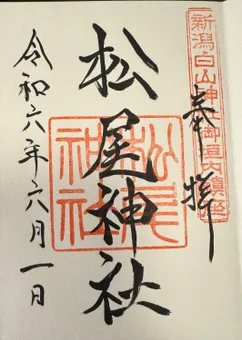 奉拝
新潟白山神社御垣内鎮座
松尾神社
松尾神社
令和六年六月一日